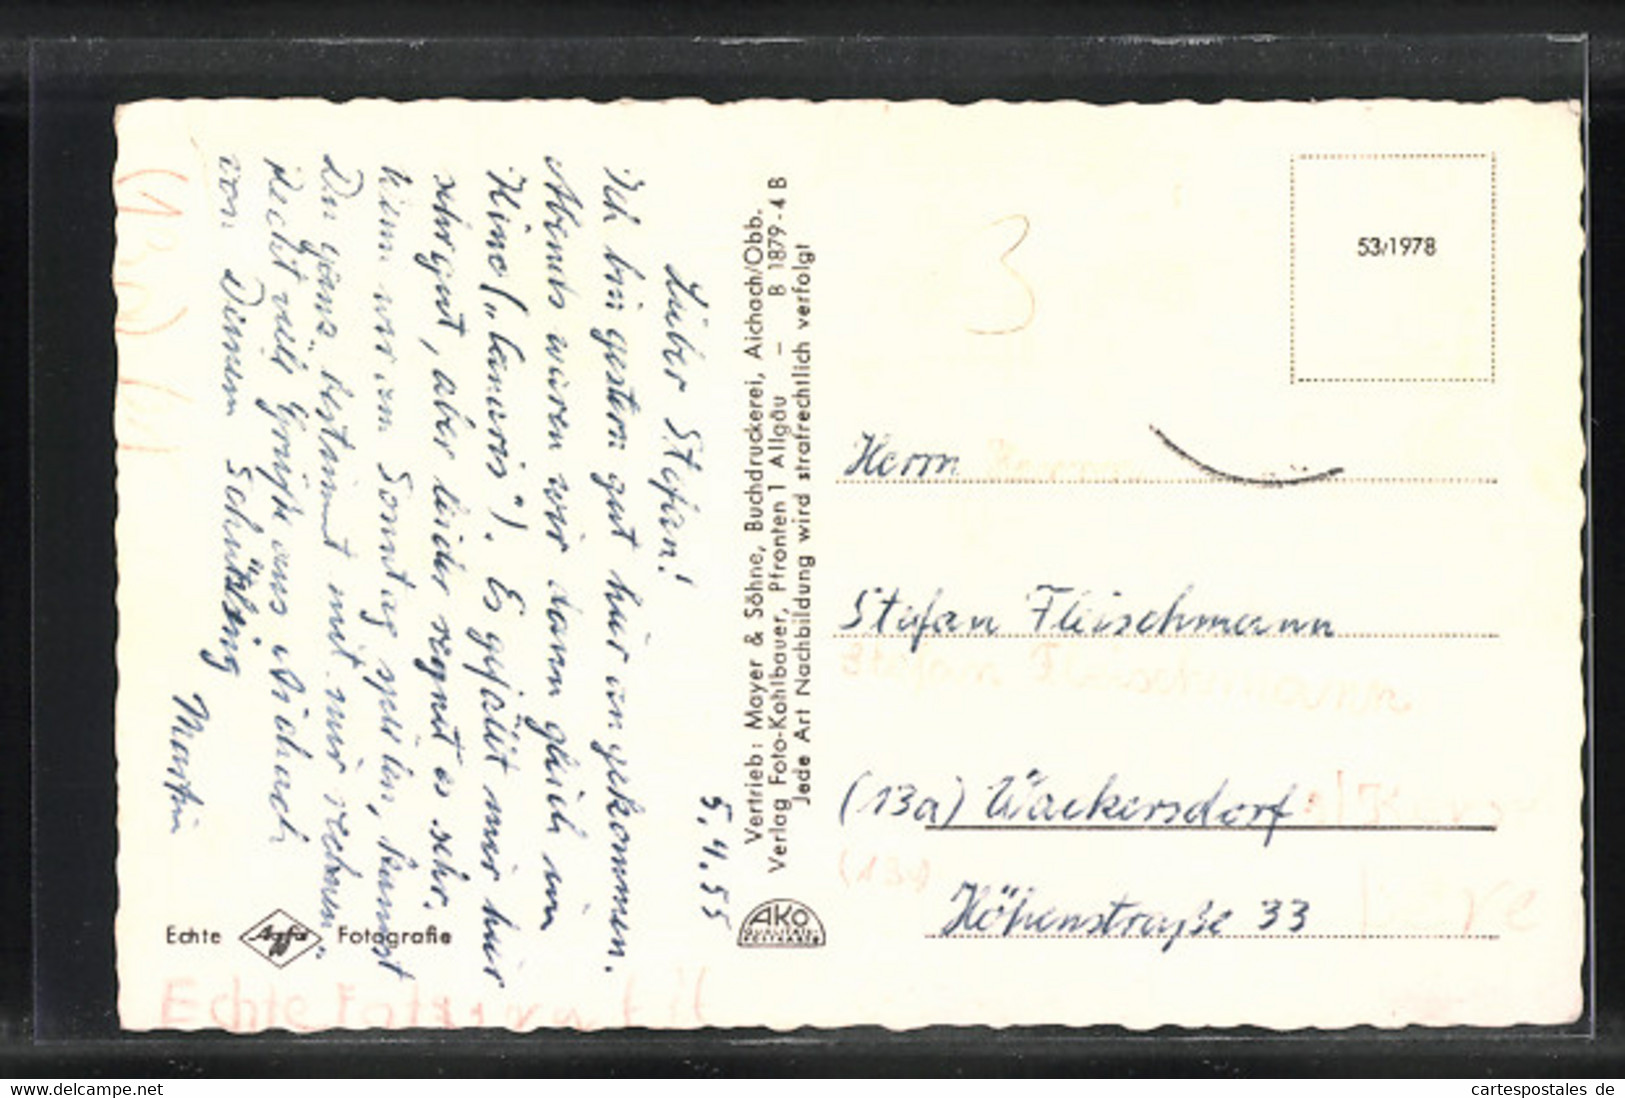 5.4.55
Lieber Stefan!
Ich bin gestern gut hier angekommen.
Abends waren wir dann gleich im
Kino („Canaris“). Es gefällt mir hier
sehr gut, aber leider regnet es sehr.
Kann wer am Sonntag spielen, kannst
Du ganz bestimmt mit mir rechnen.“
Recht viele Grüße aus Aichach
von Deinem Schützling
Martin
Echte Agfa Fotografie
Echte Fot
Vertrieb: Mayer & Söhne, Buchdruckerei, Aichach/Obb.
Verlag Foto-Kohlbauer, Pfronten 1 Allgäu – B 1879-4 B
Jede Art Nachbildung wird strafrechtlich verfolgt
AKO
QUALITÄTS-
POSTKARTE
3
53/1978
Herrn
Stefan Fleischmann
Stefan Fleischmann
(13a) Wackersdorf
(13a
Höhenstraße 33
delcampe.net
cartespostales de